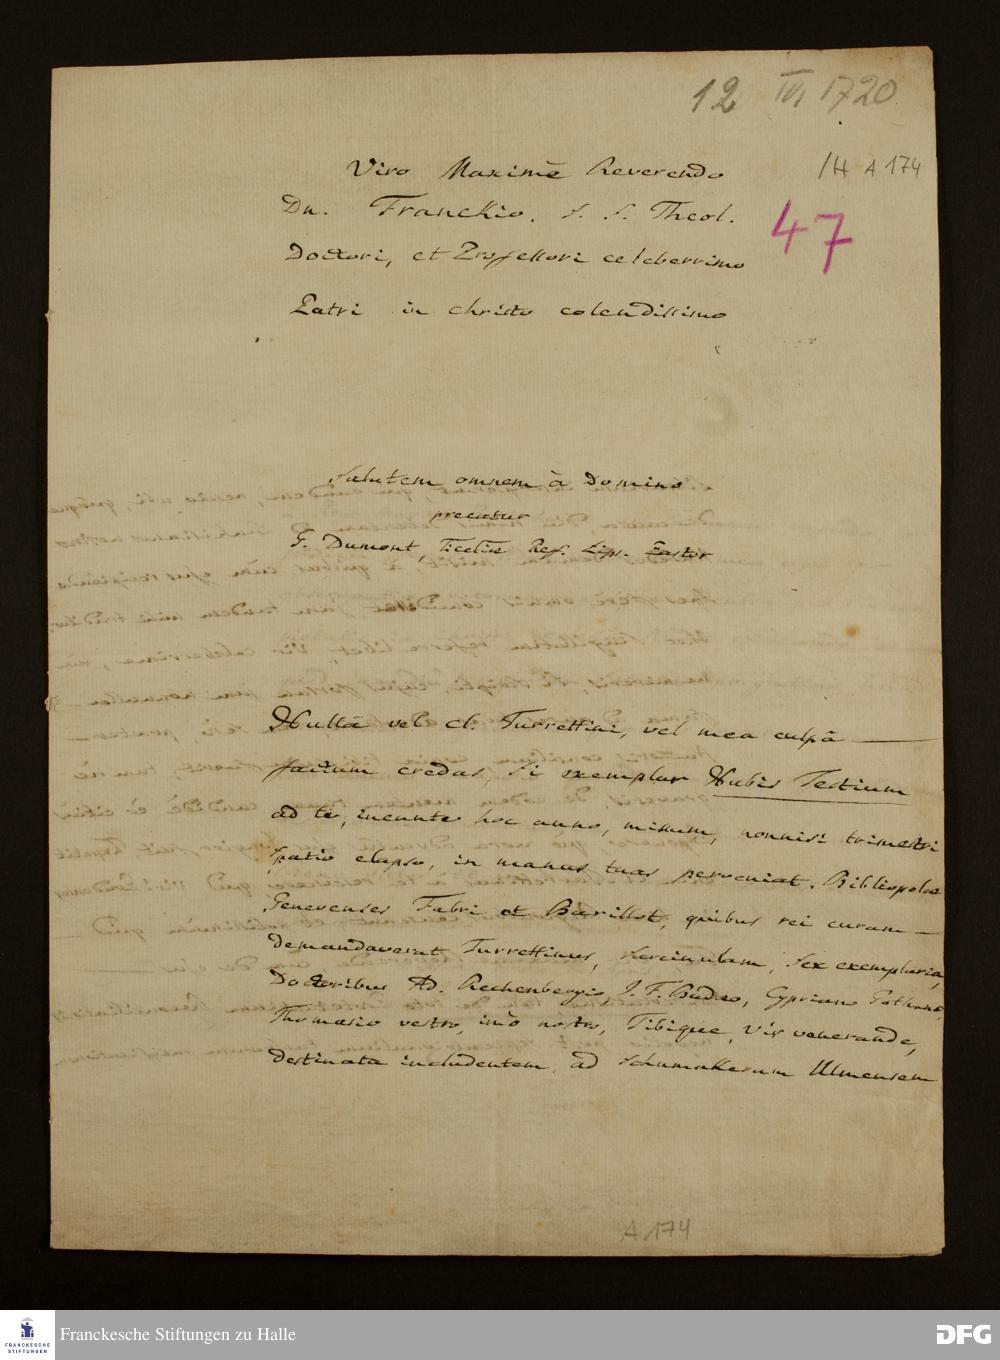 12 VI 1720
/H A 174
47
Viro Maximè Reverendo
Dn. Franckio. S. S. Theol.
Doctori, et Professori celeberrimo
Patri in Christo colendissimo
Salutem omnem à Domino
precatur
G. Dumont, Eccliæ Ref. Lips. Pastor
Nullâ vel cl. Turrettini, vel mea culpâ
factum credas, si exemplar Nubis Testium
ad te, ineunte hoc anno, missum, nonnisi trimestri
spatio elapso, in manus tuas perveniat. Bibliopolæ
Genevenses Fabri et Barillot, quibus rei curam
demandaverat Turrettinus, sarcinulam, sex exemplaria,
Doctoribus Ad. Rechenbergio, J. F. Budeo, Cypriano Gothano,
Thomasio vestro, imò nostro, Tibique, Vir venerande,
destinata includentem, ad Schumakerum Ulmensem
A 174
FRANCKESCHE
STIFTUNGEN
Franckesche Stiftungen zu Halle
DFG